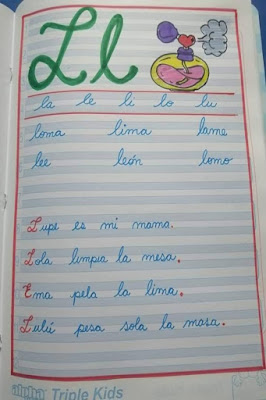 L l
la le li lo lu
loma lima lame
lee león lomo
Lupe es mi mama.
Lola limpia la mesa.
Ema pela la lima.
Lulú pesa sola la masa.
alpha Triple Kids